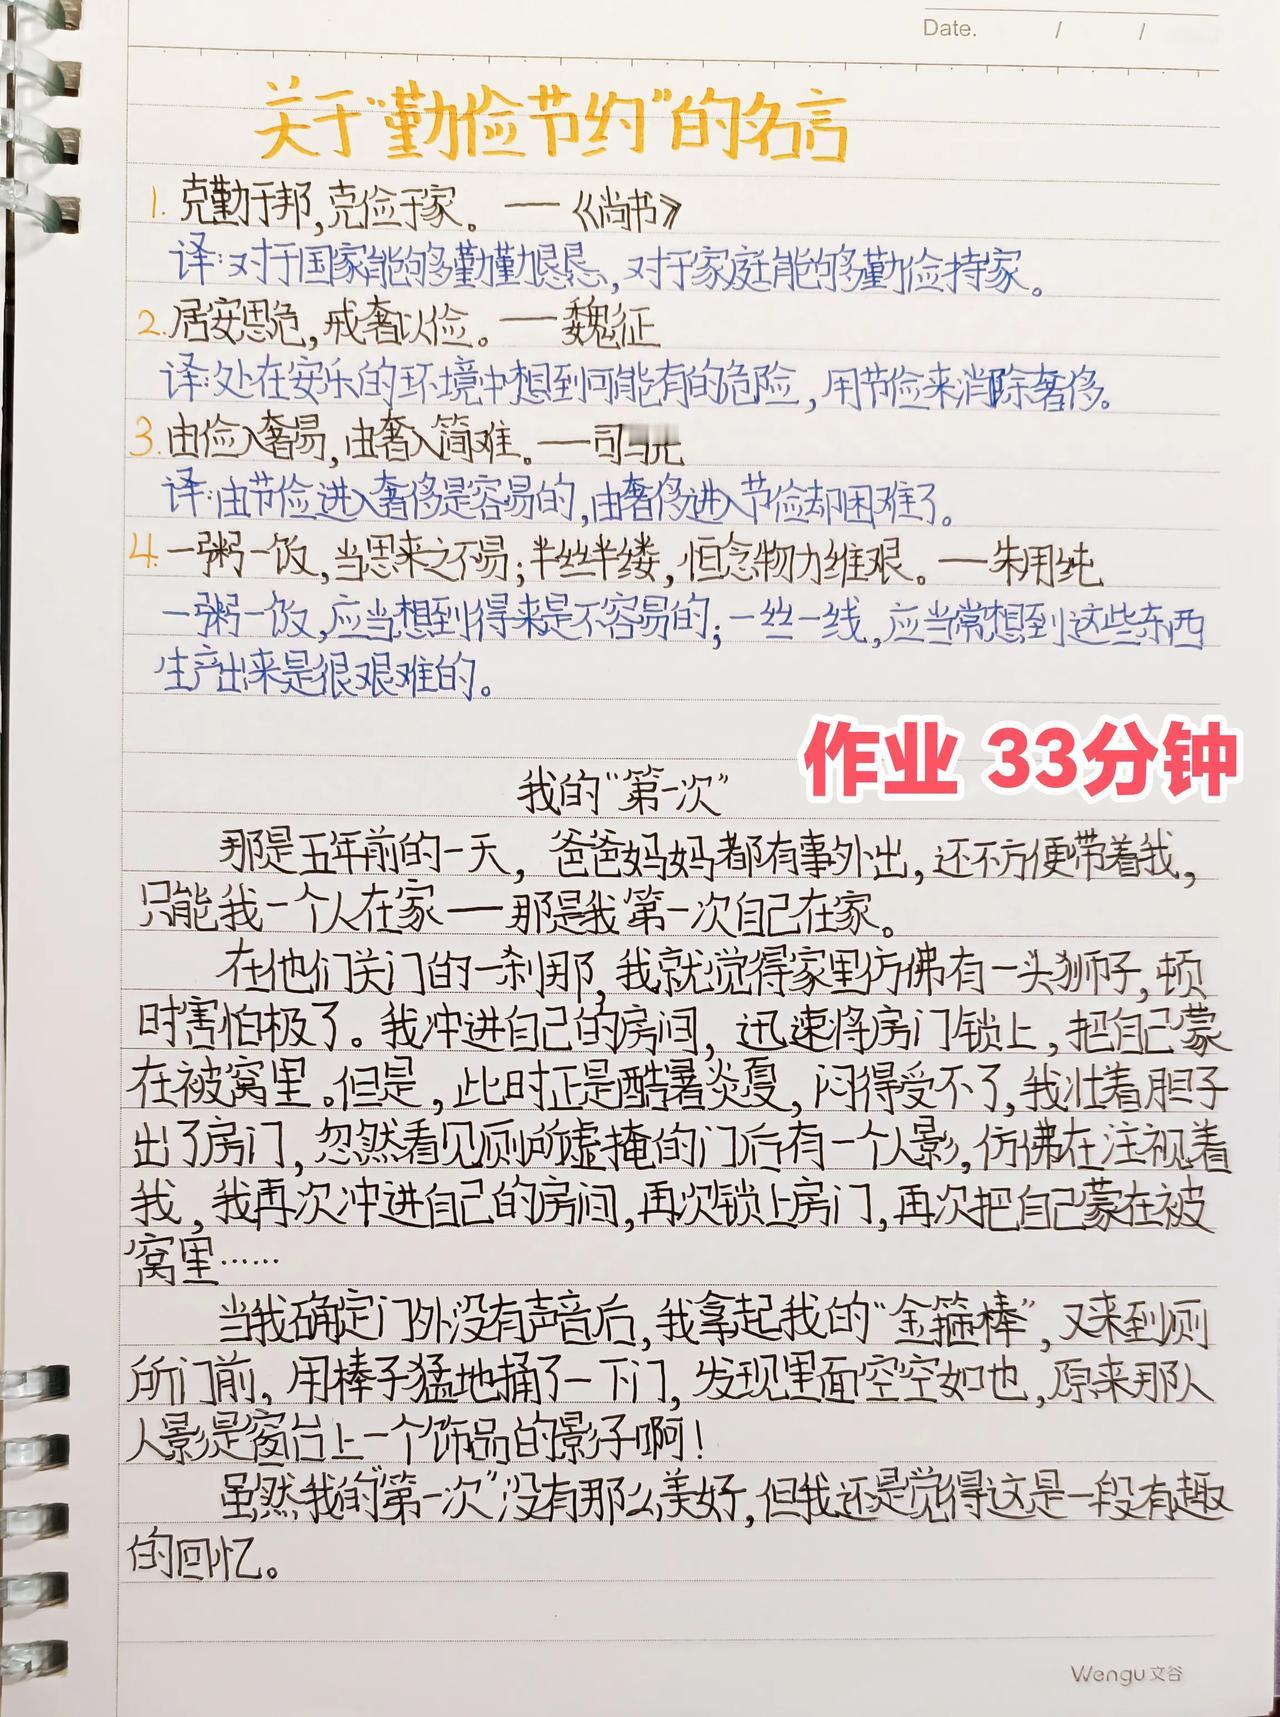 Date. / /
关于“勤俭节约”的名言
1. 克勤于邦,克俭于家。——《尚书》
译:对于国家能够勤勤恳恳,对于家庭能够勤俭持家。
2. 居安思危,戒奢以俭。——魏征
译:处在安乐的环境中想到可能有的危险,用节俭来消除奢侈。
3. 由俭入奢易,由奢入简难。——司马光
译:由节俭进入奢侈是容易的,由奢侈进入节俭却困难了。
4. 一粥一饭,当思来之不易;半丝半缕,恒念物力维艰。——朱用纯
一粥一饭,应当想到得来是不容易的;一丝一线,应当常想到这些东西
生产出来是很艰难的。
作业 33分钟
我的“第一次”
那是五年前的一天,爸爸妈妈都有事外出,还不方便带着我,
只能我一个人在家——那是我第一次自己在家。
在他们关门的一刹那,我就觉得家里仿佛有一头狮子,顿
时害怕极了。我冲进自己的房间,迅速将房门锁上,把自己蒙
在被窝里。但是,此时正是酷暑炎夏,闷得受不了,我壮着胆子
出了房门,忽然看见厕所虚掩的门后有一个人影,仿佛在注视着
我,我再次冲进自己的房间,再次锁上房门,再次把自己蒙在被
窝里……
当我确定门外没有声音后,我拿起我的“金箍棒”,又来到厕
所门前,用棒子猛地捅了一下门,发现里面空空如也,原来那
人影是窗台上一个饰品的影子啊!
虽然我的“第一次”没有那么美好,但我还是觉得这是一段有趣
的回忆。
Wengu 文谷